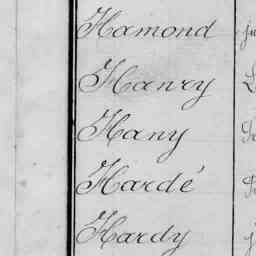 Hamond
Hanry
Hany
Hardé
Hardy